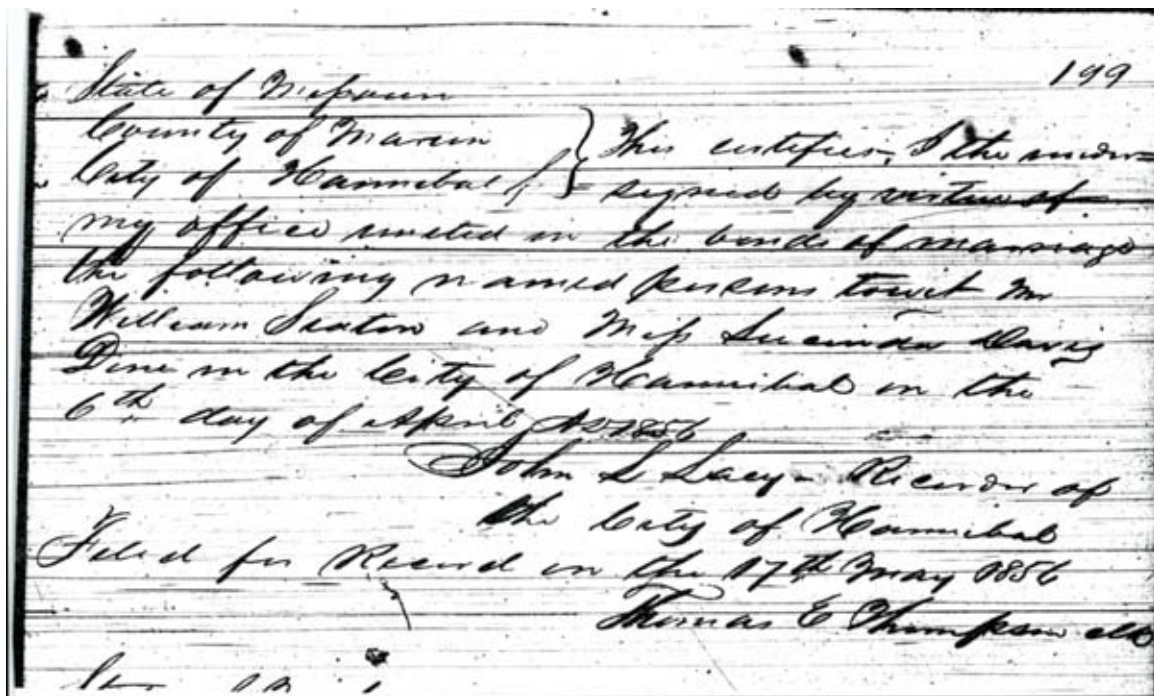 199
State of Missouri
County of Marion
City of Hannibal } This certifies, I the under=
signed by virtue of
my office united in the bonds of marriage
the following named persons towit Mr
William Seaton and Miss Lucinda Davis
Done in the City of Hannibal on the
6th day of April AD 1856
John S Lacy - Recorder of
the City of Hannibal
Filed for Record on the 17th May 1856
Thomas E Thompson clk